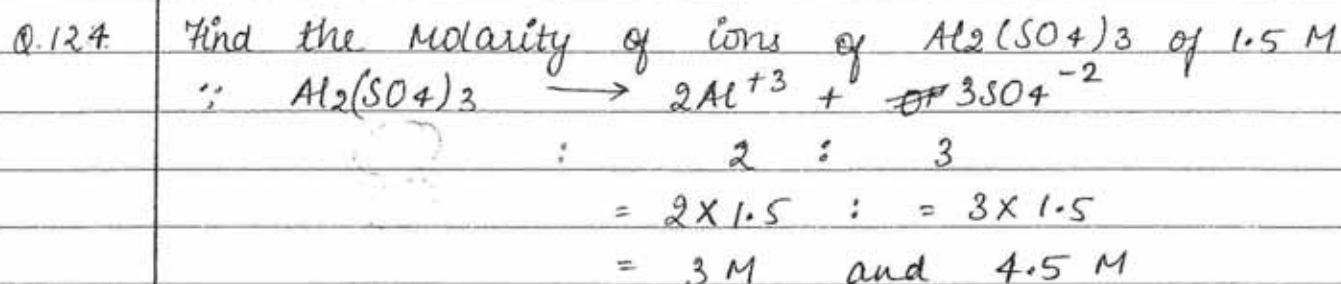 Q.124. Find the Molarity of ions of Al2(SO4)3 of 1.5 M
∵ Al2(SO4)3 → 2Al+3 + 3SO4-2
: 2 : 3
= 2X1.5 : = 3X1.5
= 3M and 4.5 M